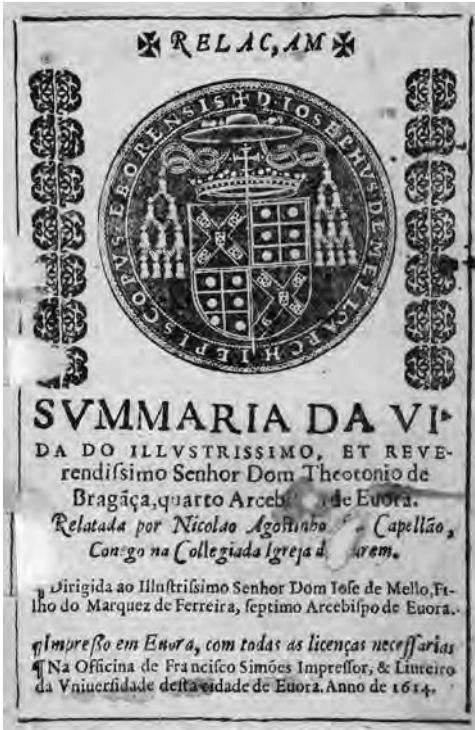 ✠ RELAC,AM ✠
✠ D. IOSEPHVS DE MELLO ARCHIEPISCOPVS EBORENSIS
SVMMARIA DA VI-
DA DO ILLVSTRISSIMO, ET REVE-
rendiſsimo Senhor Dom Theotonio de
Bragãça, quarto Arcebi de Euora.
Relatada por Nicolao Agoſtinho Capellão,
Conego na Collegiada Igreja d
¶ Dirigida ao Illuſtriſsimo Senhor Dom Ioſe de Mello, Fi-
lho do Marquez de Ferreira, ſeptimo Arcebiſpo de Euora.
¶Impreſſo em Euora, com todas as licenças neceſſarias
¶Na Officina de Franciſco Simões Impreſſor, & Liureiro
da Vniuerſidade deſta cidade de Euora. Anno de 1614.